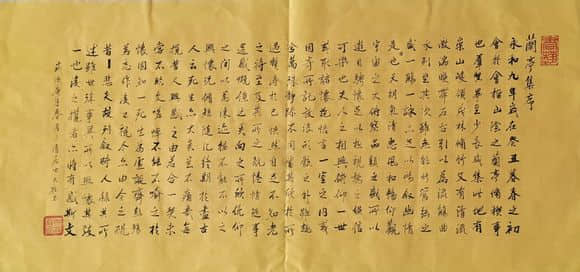 蘭亭集序
永和九年歲在癸丑暮春之初
會於會稽山陰之蘭亭脩禊事
也羣賢畢至少長咸集此地有
崇山峻領茂林脩竹又有清流
激湍暎帶左右引以為流觴曲
水列坐其次雖無絲竹管弦之
盛一觴一詠亦足以暢敘幽情
是日也天朗氣清惠風和暢仰觀
宇宙之大俯察品類之盛所以
遊目騁懷足以極視聽之娛信
可樂也夫人之相與俯仰一世
或取諸懷抱悟言一室之內或
因寄所託放浪形骸之外雖趣
舍萬殊靜躁不同當其欣於所
遇暫得於己快然自足不知老
之將至及其所之既倦情隨事
遷感慨係之矣向之所欣俛仰
之間以為陳迹猶不能不以之
興懷況脩短隨化終期於盡古
人云死生亦大矣豈不痛哉每
攬昔人興感之由若合一契未
嘗不臨文嗟悼不能喻之於
懷固知一死生為虛誕齊彭殤
為妄作後之視今亦由今之視
昔悲夫故列敘時人錄其所
述雖世殊事異所以興懷其致
一也後之攬者亦將有感斯文